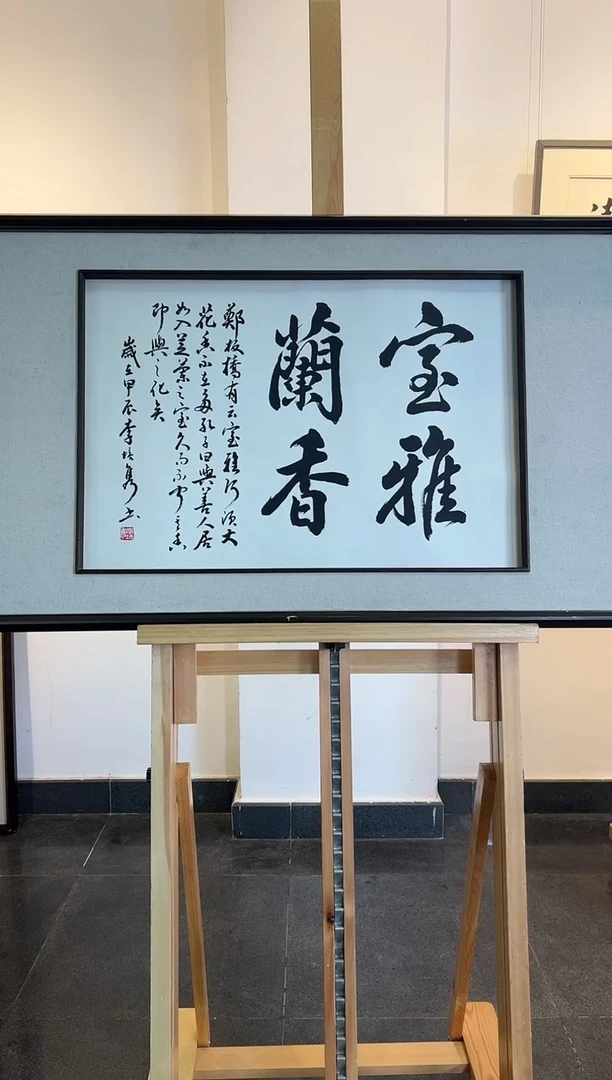 室雅
蘭香
鄭板橋有云室雅何須大
花香不在多孔子曰與善人居
如入芝蘭之室久而不聞其香
即與之化矣
歲在甲辰李培隽书